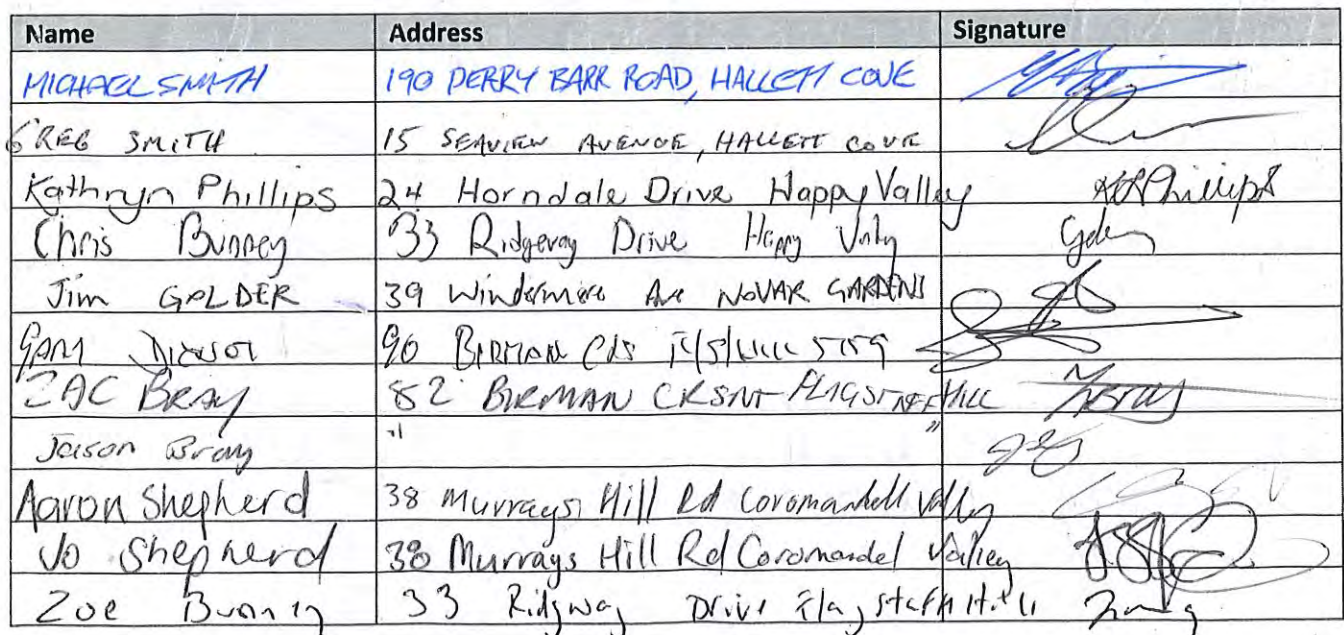 Name Address Signature
MICHAEL SMITH 190 PERRY BARR ROAD, HALLETT COVE
GREG SMITH 15 SEAVIEW AVENUE, HALLETT COVE
Kathryn Phillips 24 Horndale Drive Happy Valley KPhillips
Chris Bunney 33 Ridgeway Drive Happy Vally
Jim GOLDER 39 Windermere Ave NOVAR GARDENS
GARY 90 BIRMAN CRS 5159
ZAC BRAY 82 BIRMAN CRSNT FLAGSTAFF HILL
Jaison Bray " "
Aaron Shepherd 38 Murrays Hill Rd Coromandell Valley
Jo Shepherd 38 Murrays Hill Rd Coromandel Valley
Zoe Bunney 33 Ridgway Drive Flagstaff Hill